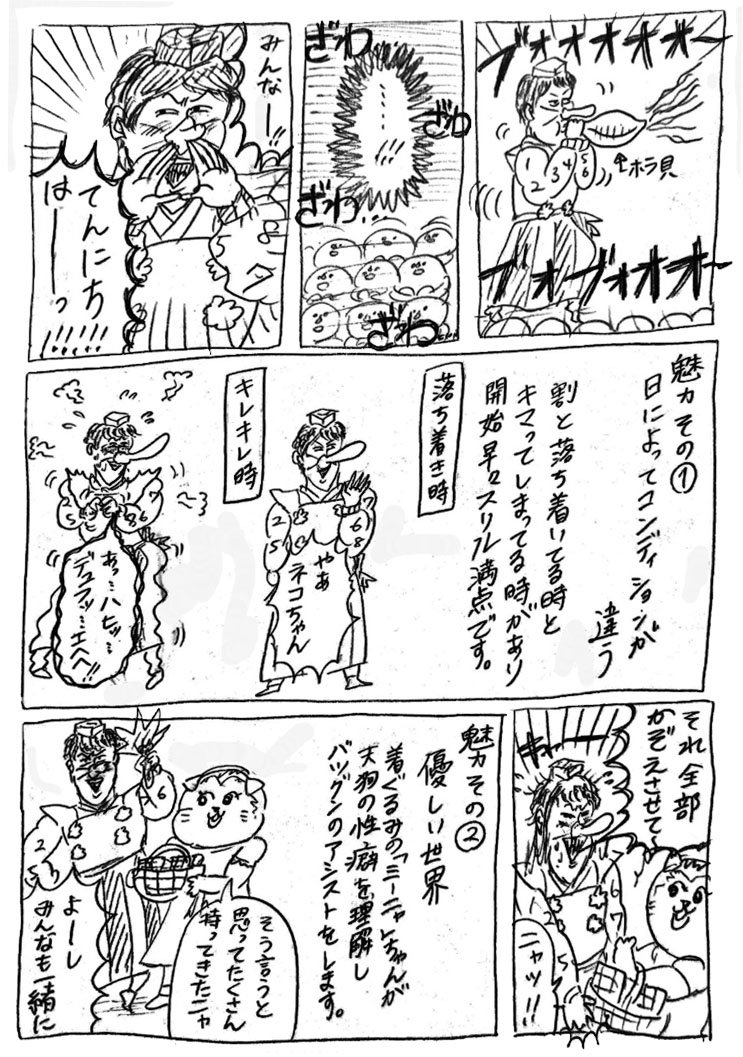 ブォオオオオオ〜
1
2
3
4
5
6
↑ホラ貝
ブォオブォオオオ〜
ざわ
ざわ
ざわ…
ざわ
……!!!
みんなー!!
てんにち
はーーっ!!!!!
魅力その①
日によってコンディションが
違う
割と落ち着いてる時と
キマってしまってる時があり
開始早々スリル満点です。
落ち着き時
やあ
ネコちゃん
2
5
6
8
キレキレ時
あっ…ハヒッ…
デュラッ…エヘ!!
それ全部
かぞえさせて〜
キャー
ニャッ!!
魅力その②
優しい世界
着ぐるみの「ミーニャ」ちゃんが
天狗の性癖を理解し
バツグンのアシストをします。
そう言うと
思ってたくさん
持ってきたニャ
よーし
みんなも一緒に
2
5
6